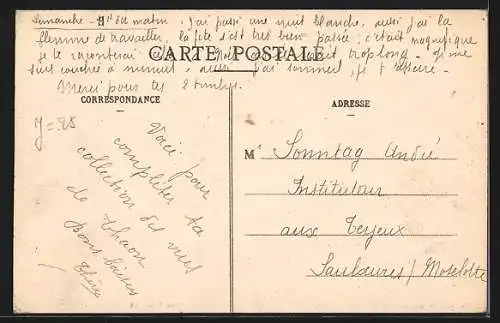 Dimanche - 11h du matin. j'ai passé une nuit blanche, aussi j'ai la
flemme de travailler, la fête s'est très bien passée, c'était magnifique
je te raconterai trop long. je me
suis couchée à minuit, aussi j'ai sommeil, je t'assure.
Merci pour tes 2 timbres.
CARTE POSTALE
CORRESPONDANCE
Voici pour
compléter ta
collection des vues
de Thaon
Bons baisers
ADRESSE
M Sonntag André
Instituteur
aux Teyeux
Saulxures / Moselotte